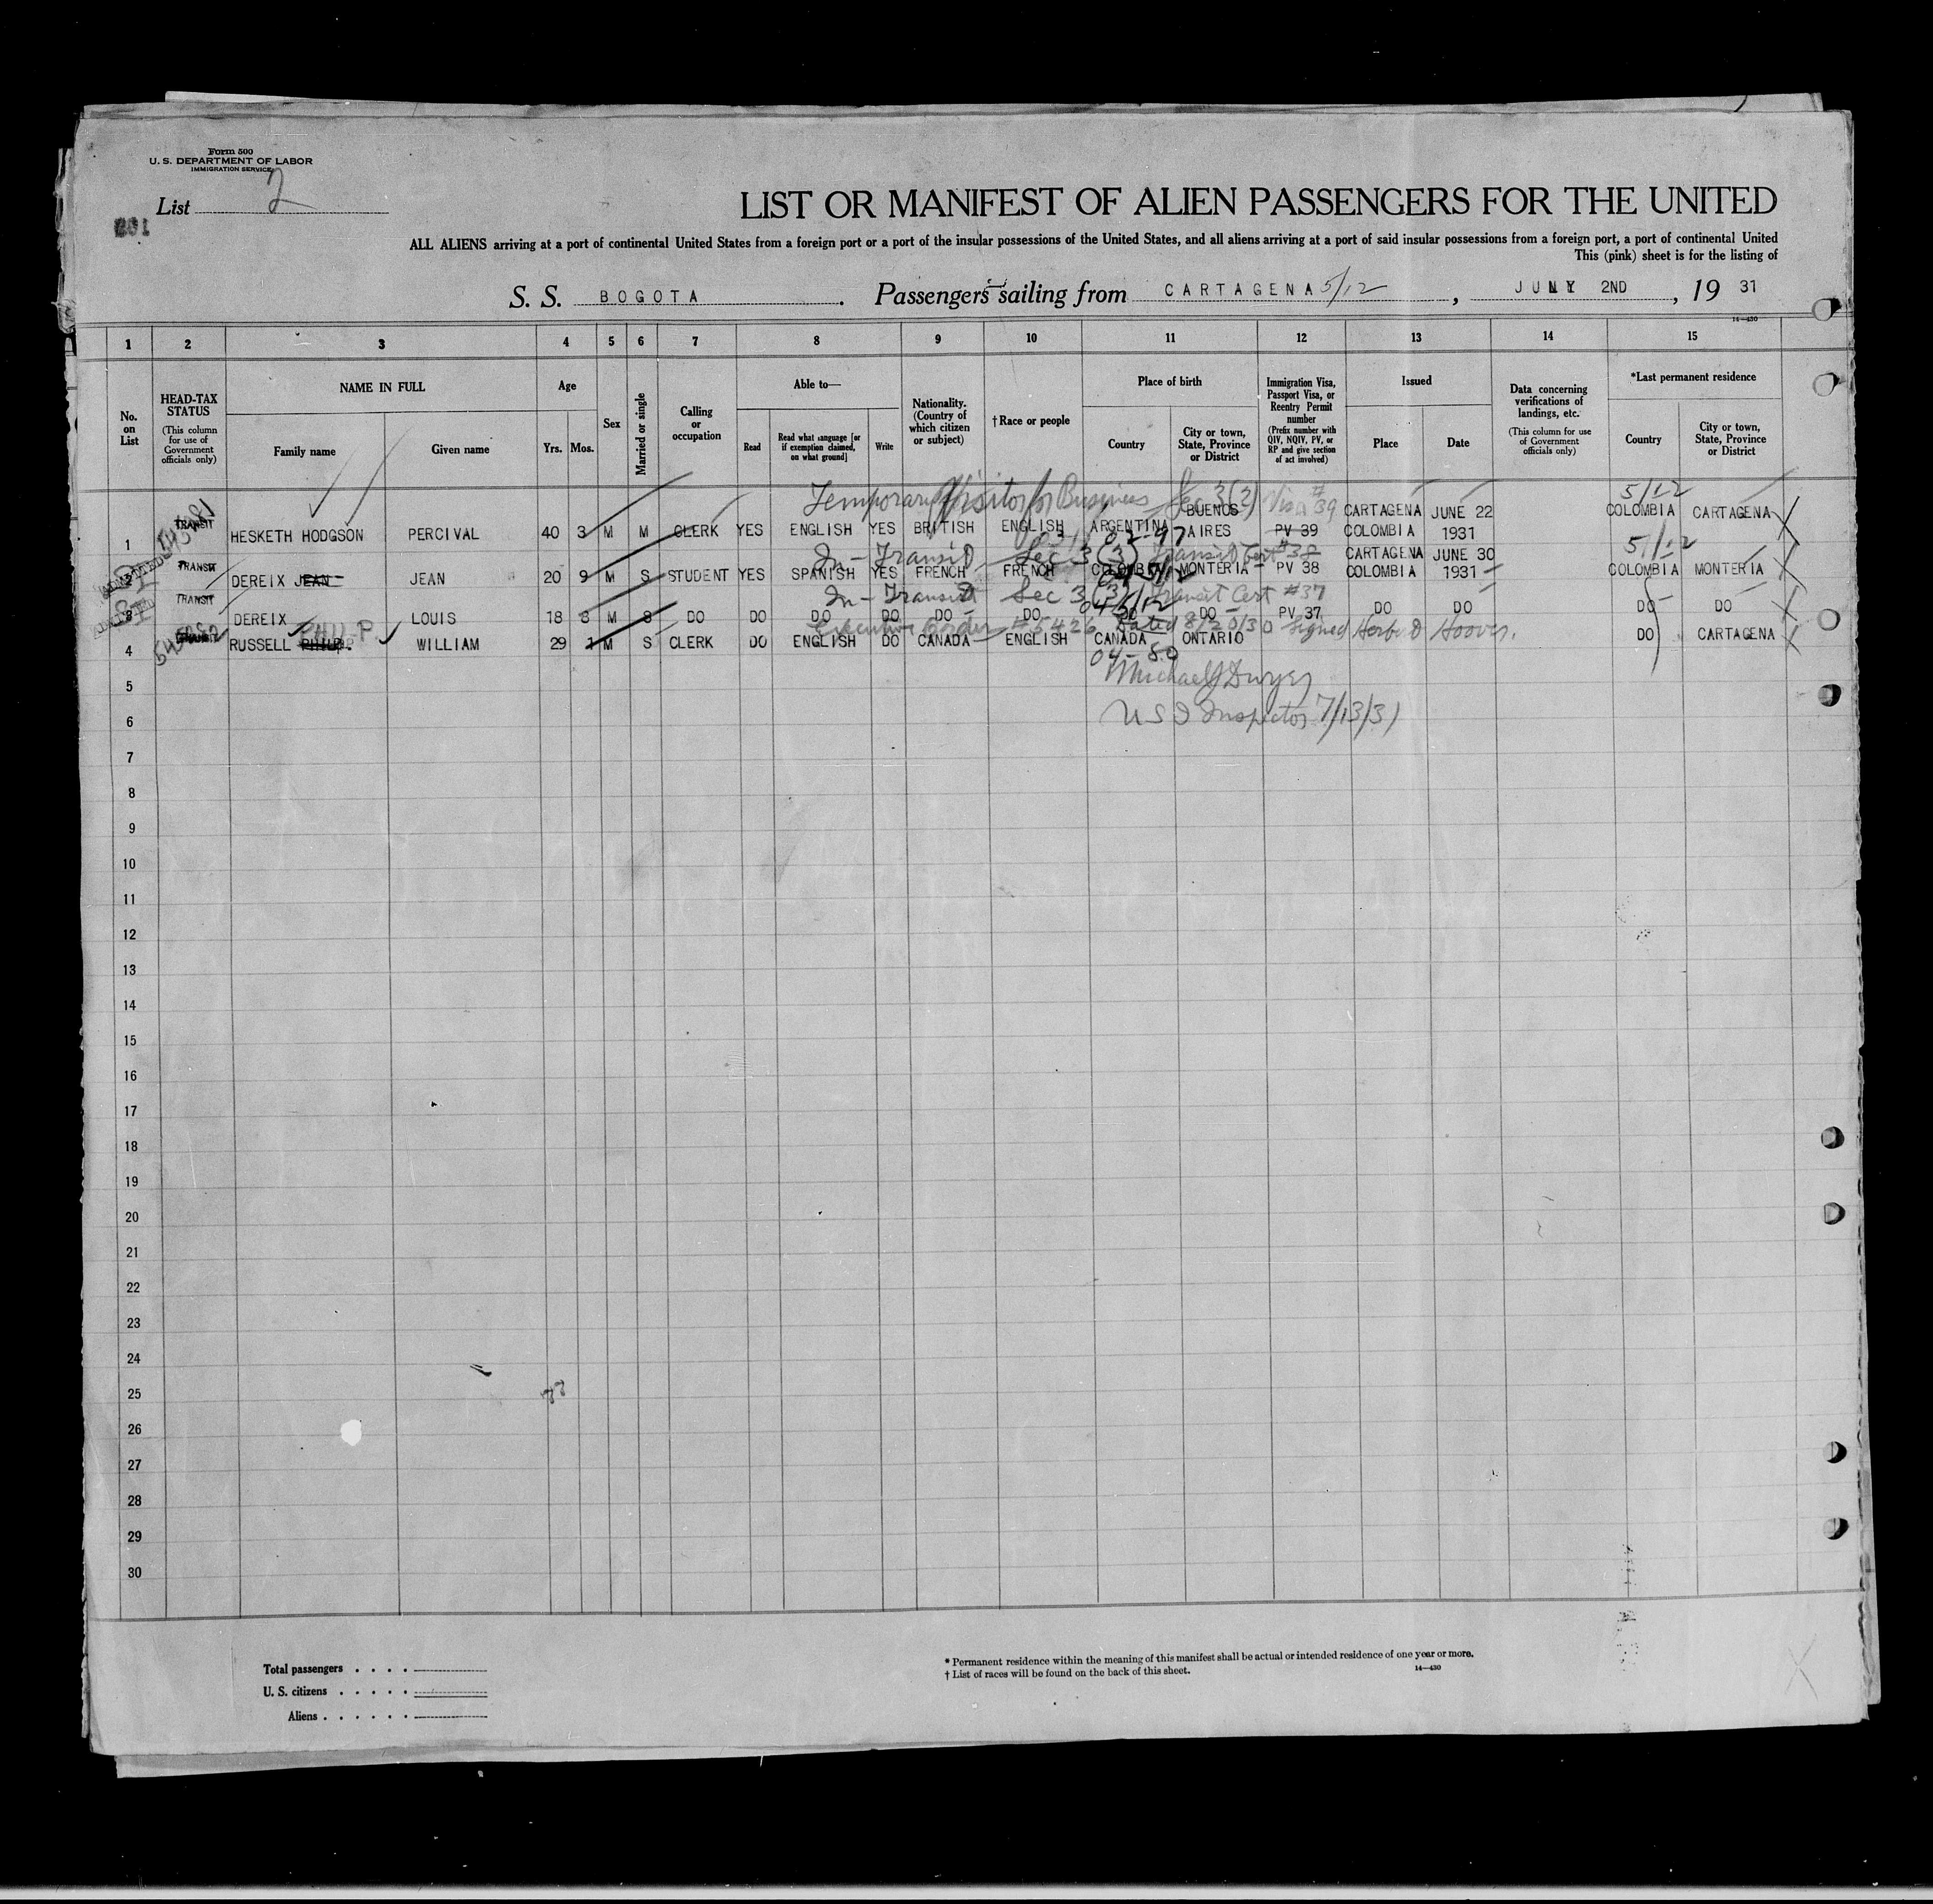 Form 500
U. S. DEPARTMENT OF LABOR
IMMIGRATION SERVICE
List 2
201
LIST OR MANIFEST OF ALIEN PASSENGERS FOR THE UNITED
ALL ALIENS arriving at a port of continental United States from a foreign port or a port of the insular possessions of the United States, and all aliens arriving at a port of said insular possessions from a foreign port, a port of continental United
This (pink) sheet is for the listing of
S. S. BOGOTA. Passengers sailing from CARTAGENA 5/12, 2ND, 19 31
14—430
1 2 3 4 5 6 7 8 9 10 11 12 13 14 15
No. on List
HEAD-TAX STATUS (This column for use of Government officials only)
NAME IN FULL
Family name
Given name
Age
Yrs. Mos.
Sex
Married or single
Calling or occupation
Able to—
Read
Read what language [or if exemption claimed, on what ground]
Write
Nationality. (Country of which citizen or subject)
† Race or people
Place of birth
Country
City or town, State, Province or District
Immigration Visa, Passport Visa, or Reentry Permit number (Prefix number with QIV, NQIV, PV, or RP and give section of act involved)
Issued
Place
Date
Data concerning verifications of landings, etc. (This column for use of Government officials only)
*Last permanent residence
Country
City or town, State, Province or District
Temporary Visitor for Business Sec 3 (2) Visa # 39 5/12
1 TRANSIT HESKETH HODGSON PERCIVAL 40 3 M M CLERK YES ENGLISH YES BRITISH ENGLISH ARGENTINA BUENOS AIRES PV 39 CARTAGENA COLOMBIA JUNE 22 1931 COLOMBIA CARTAGENA
02-97
In-Transit Sec 3 (3) Transit Cert #38 5/12
2 TRANSIT DEREIX JEAN JEAN 20 9 M S STUDENT YES SPANISH YES FRENCH FRENCH COLOMBIA MONTERIA PV 38 CARTAGENA COLOMBIA JUNE 30 1931 COLOMBIA MONTERIA
In-Transit Sec 3 (3) Transit Cert #37
3 TRANSIT DEREIX LOUIS 18 3 M S DO DO DO DO DO DO DO DO PV 37 DO DO DO DO
Executive Order #5426 Dated 8/20/30 Signed Herbert Hoover.
4 TRANSIT RUSSELL PHILP. WILLIAM 29 1 M S CLERK DO ENGLISH DO CANADA ENGLISH CANADA ONTARIO DO CARTAGENA
04-50
5 Michael J Dwyer
6 U S I Inspector 7/13/31
7
8
9
10
11
12
13
14
15
16
17
18
19
20
21
22
23
24
25
26
27
28
29
30
Total passengers . . . .
U. S. citizens . . . . .
Aliens . . . . . .
* Permanent residence within the meaning of this manifest shall be actual or intended residence of one year or more.
† List of races will be found on the back of this sheet.
14—430